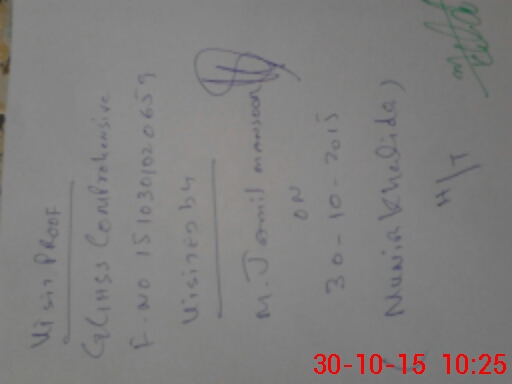 Visit PROOF
GGHSS Comprehensive
F-NO 1510301020659
Visited by
M. Jamil mansoor
ON
30-10-2015
(Munir Khalida)
H/T
30-10-15 10:25